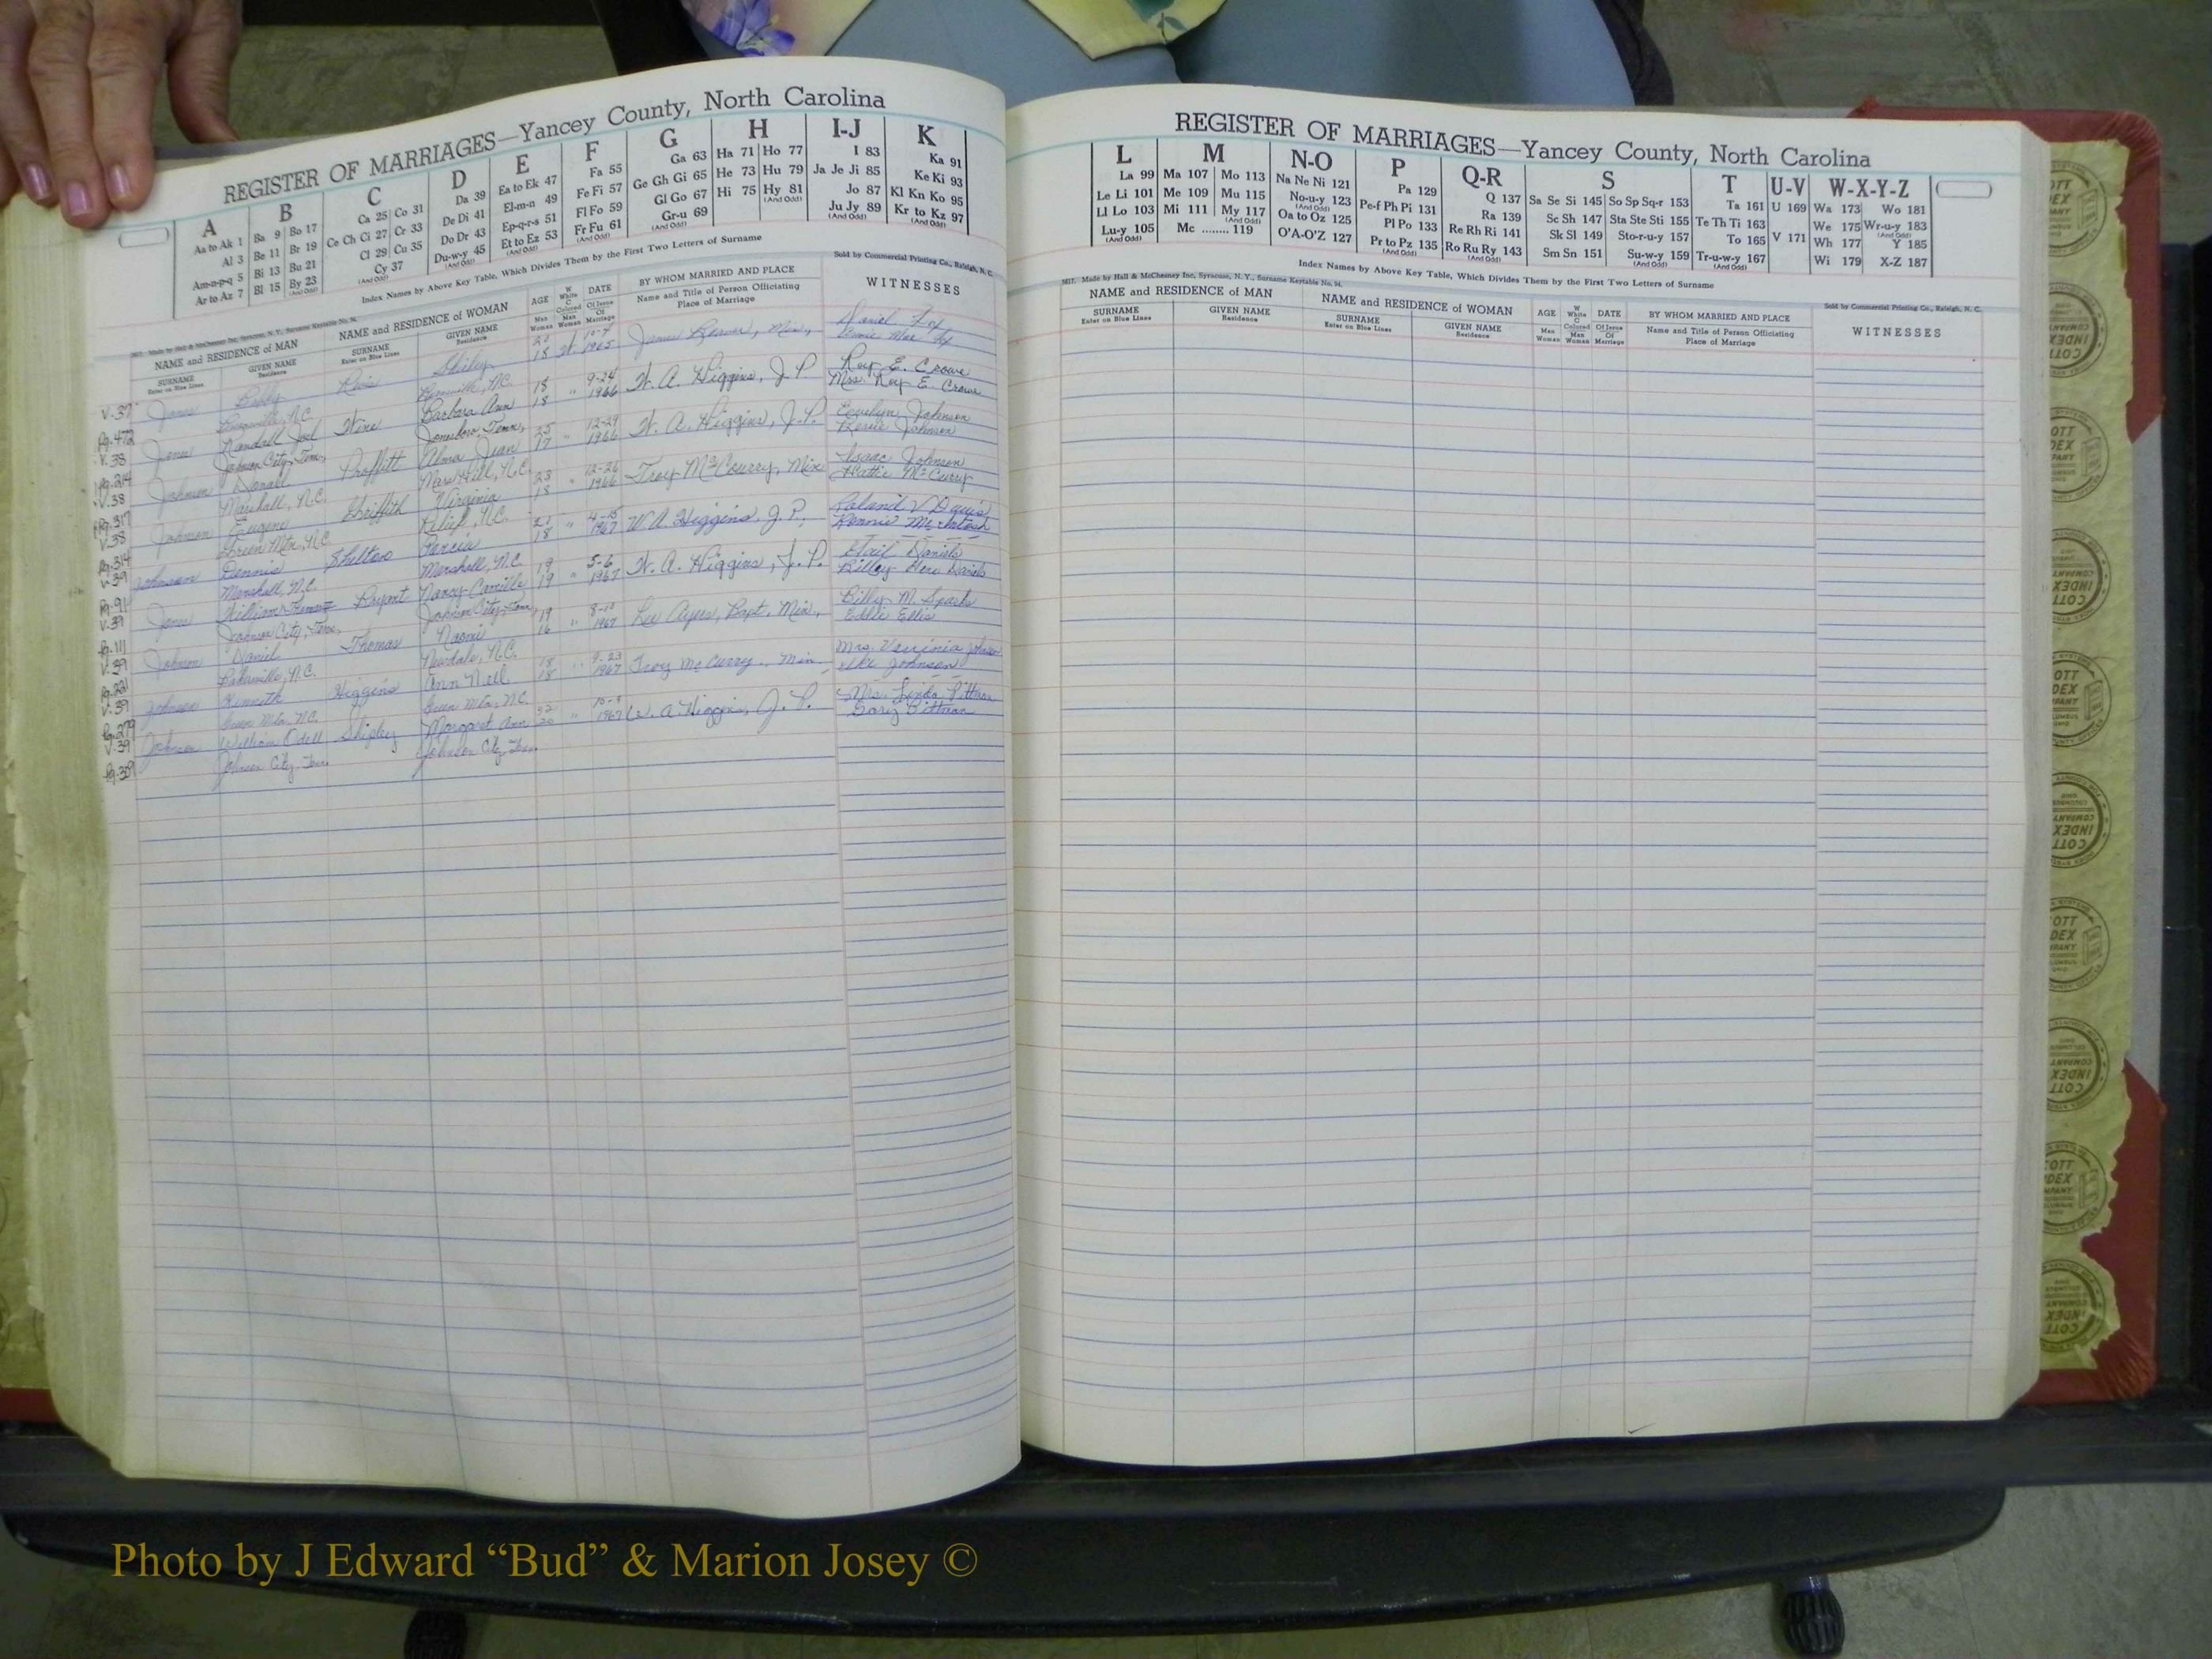 REGISTER OF MARRIAGES—Yancey County, North Carolina
A B C D E F G H I-J K
Aa to Ak 1 Ba 9 Bo 17 Ca 25 Co 31 Da 39 Ea to Ek 47 Fa 55 Ga 63 Ha 71 Ho 77 I 83 Ka 91
Al 3 Be 11 Br 19 Ce Ch Ci 27 Cr 33 De Di 41 El-m-n 49 Fe Fi 57 Ge Gh Gi 65 He 73 Hu 79 Ja Je Ji 85 Ke Ki 93
Am-n-p-q 5 Bi 13 Bu 21 Cl 29 Cu 35 Do Dr 43 Ep-q-r-s 51 Fl Fo 59 Gl Go 67 Hi 75 Hy 81 Jo 87 Kl Kn Ko 95
Ar to Az 7 Bl 15 By 23 Cy 37 Du-w-y 45 Et to Ez 53 Fr Fu 61 Gr-u 69 Ju Jy 89 Kr to Kz 97
(And Odd)
Index Names by Above Key Table, Which Divides Them by the First Two Letters of Surname
Sold by Commercial Printing Co., Raleigh, N. C.
NAME and RESIDENCE of MAN NAME and RESIDENCE of WOMAN AGE DATE BY WHOM MARRIED AND PLACE WITNESSES
SURNAME Enter on Blue Lines GIVEN NAME Residence SURNAME Enter on Blue Lines GIVEN NAME Residence Man Woman W White C Colored Man Woman Of Issue Of Marriage Name and Title of Person Officiating Place of Marriage
V-37 Jones Billy Shirley 18 1965 Daniel
Pg. 472
V-38 Jones Randall Barbara Ann 18 18 " 9-24 1966 W. A. Higgins, J. P. Roy E. Crowe
Johnson City, Tenn. Jonesboro Tenn. Mrs. Roy E. Crowe
Pg. 214
V-38 Johnson Proffitt Alma Jean 25 17 " 12-29 1966 W. A. Higgins, J. P. Johnson
Marshall, N.C. Mars Hill, N.C. Johnson
Pg. 317
V-38 Johnson Eugene Griffith Virginia 23 18 " 12-26 1966 Troy McCourry, Min. Isaac Johnson
Green Mtn., N.C. Relief, N.C. Hattie McCurry
Pg. 314
V-39 Johnson Dennis Shelton 21 18 " 4-15 1967 W A Higgins, J. P. Roland V Davis
Marshall, N.C. Marshall, N.C. McIntosh
Pg. 91
V-39 Jones William Bryant Nancy Camille 19 19 " 5-6 1967 W. A. Higgins, J. P. Daniels
Johnson City, Tenn. Johnson City, Tenn. Daniels
Pg. 111
V-39 Johnson Daniel Thomas Naomi 19 16 " 1967 Lee Ayers, Bapt. Min. Billy M. Sparks
Bakersville, N.C. Newdale, N.C. Eddie Ellis
Pg. 221
V-39 Johnson Kenneth Higgins Ann Nell 18 18 " 9-23 1967 Troy McCurry, Min. Mrs. Johnson
Green Mtn. N.C. Green Mtn. N.C. Johnson
Pg. 279
V-39 Johnson William Odell Shipley Margaret Ann 32 20 " 1967 W. A Higgins, J. P. Mrs. Linda Pittman
Johnson City Tenn. Johnson City, Tenn. Gary Pittman
Pg. 309
REGISTER OF MARRIAGES—Yancey County, North Carolina
L M N-O P Q-R S T U-V W-X-Y-Z
La 99 Ma 107 Mo 113 Na Ne Ni 121 Pa 129 Q 137 Sa Se Si 145 So Sp Sq-r 153 Ta 161 U 169 Wa 173 Wo 181
Le Li 101 Me 109 Mu 115 No-u-y 123 Pe-f Ph Pi 131 Ra 139 Sc Sh 147 Sta Ste Sti 155 Te Th Ti 163 We 175 Wr-u-y 183
Ll Lo 103 Mi 111 My 117 Oa to Oz 125 Pl Po 133 Re Rh Ri 141 Sk Sl 149 Sto-r-u-y 157 To 165 V 171 Wh 177 Y 185
Lu-y 105 Mc ........ 119 O'A-O'Z 127 Pr to Pz 135 Ro Ru Ry 143 Sm Sn 151 Su-w-y 159 Tr-u-w-y 167 Wi 179 X-Z 187
(And Odd)
Index Names by Above Key Table, Which Divides Them by the First Two Letters of Surname
Made by Hall & McChesney Inc, Syracuse, N. Y., Surname Keytable No. 94.
Sold by Commercial Printing Co., Raleigh, N. C.
NAME and RESIDENCE of MAN NAME and RESIDENCE of WOMAN AGE DATE BY WHOM MARRIED AND PLACE WITNESSES
SURNAME Enter on Blue Lines GIVEN NAME Residence SURNAME Enter on Blue Lines GIVEN NAME Residence Man Woman W White C Colored Man Woman Of Issue Of Marriage Name and Title of Person Officiating Place of Marriage
Photo by J Edward “Bud” & Marion Josey ©